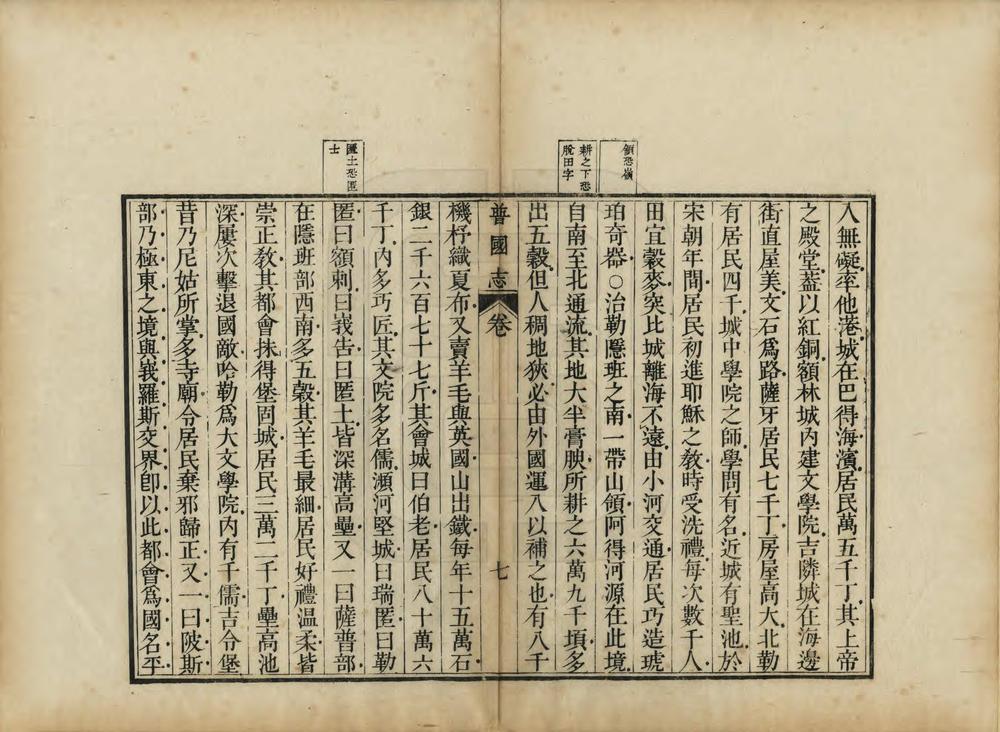 領恐嶺
耕之下恐
脫田字
匿土恐匿
士
入無礙率他港城在巴得海濱居民萬五千丁其上帝
之殿堂蓋以紅銅額林城內建文學院吉隣城在海邊
街直屋美文石爲路薩牙居民七千丁房屋高大北勒
有居民四千城中學院之師學問有名近城有聖池於
宋朝年間居民初進耶穌之敎時受洗禮每次數千人
田宜穀麥突比城離海不遠由小河交通居民巧造琥
珀奇器○治勒隱班之南一帶山領阿得河源在此境
自南至北通流其地大半膏腴所耕之六萬九千頃多
出五穀但人稠地狹必由外國運入以補之也有八千
普國志 卷 七
機杼織夏布又賣羊毛與英國山出鐵每年十五萬石
銀二千六百七十七斤其會城曰伯老居民八十萬六
千丁內多巧匠其文院多名儒瀕河堅城曰瑞匿曰勒
匿曰額刺曰峩告曰匿土皆深溝高壘又一曰薩普部
在隱班部西南多五穀其羊毛最細居民好禮溫柔皆
崇正敎其都會抹得堡固城居民三萬二千丁壘高池
深屢次擊退國敵哈勒爲大文學院內有千儒吉令堡
昔乃尼姑所掌多寺廟令居民棄邪歸正又一曰陂斯
部乃極東之境與峩羅斯交界卽以此都會爲國名平